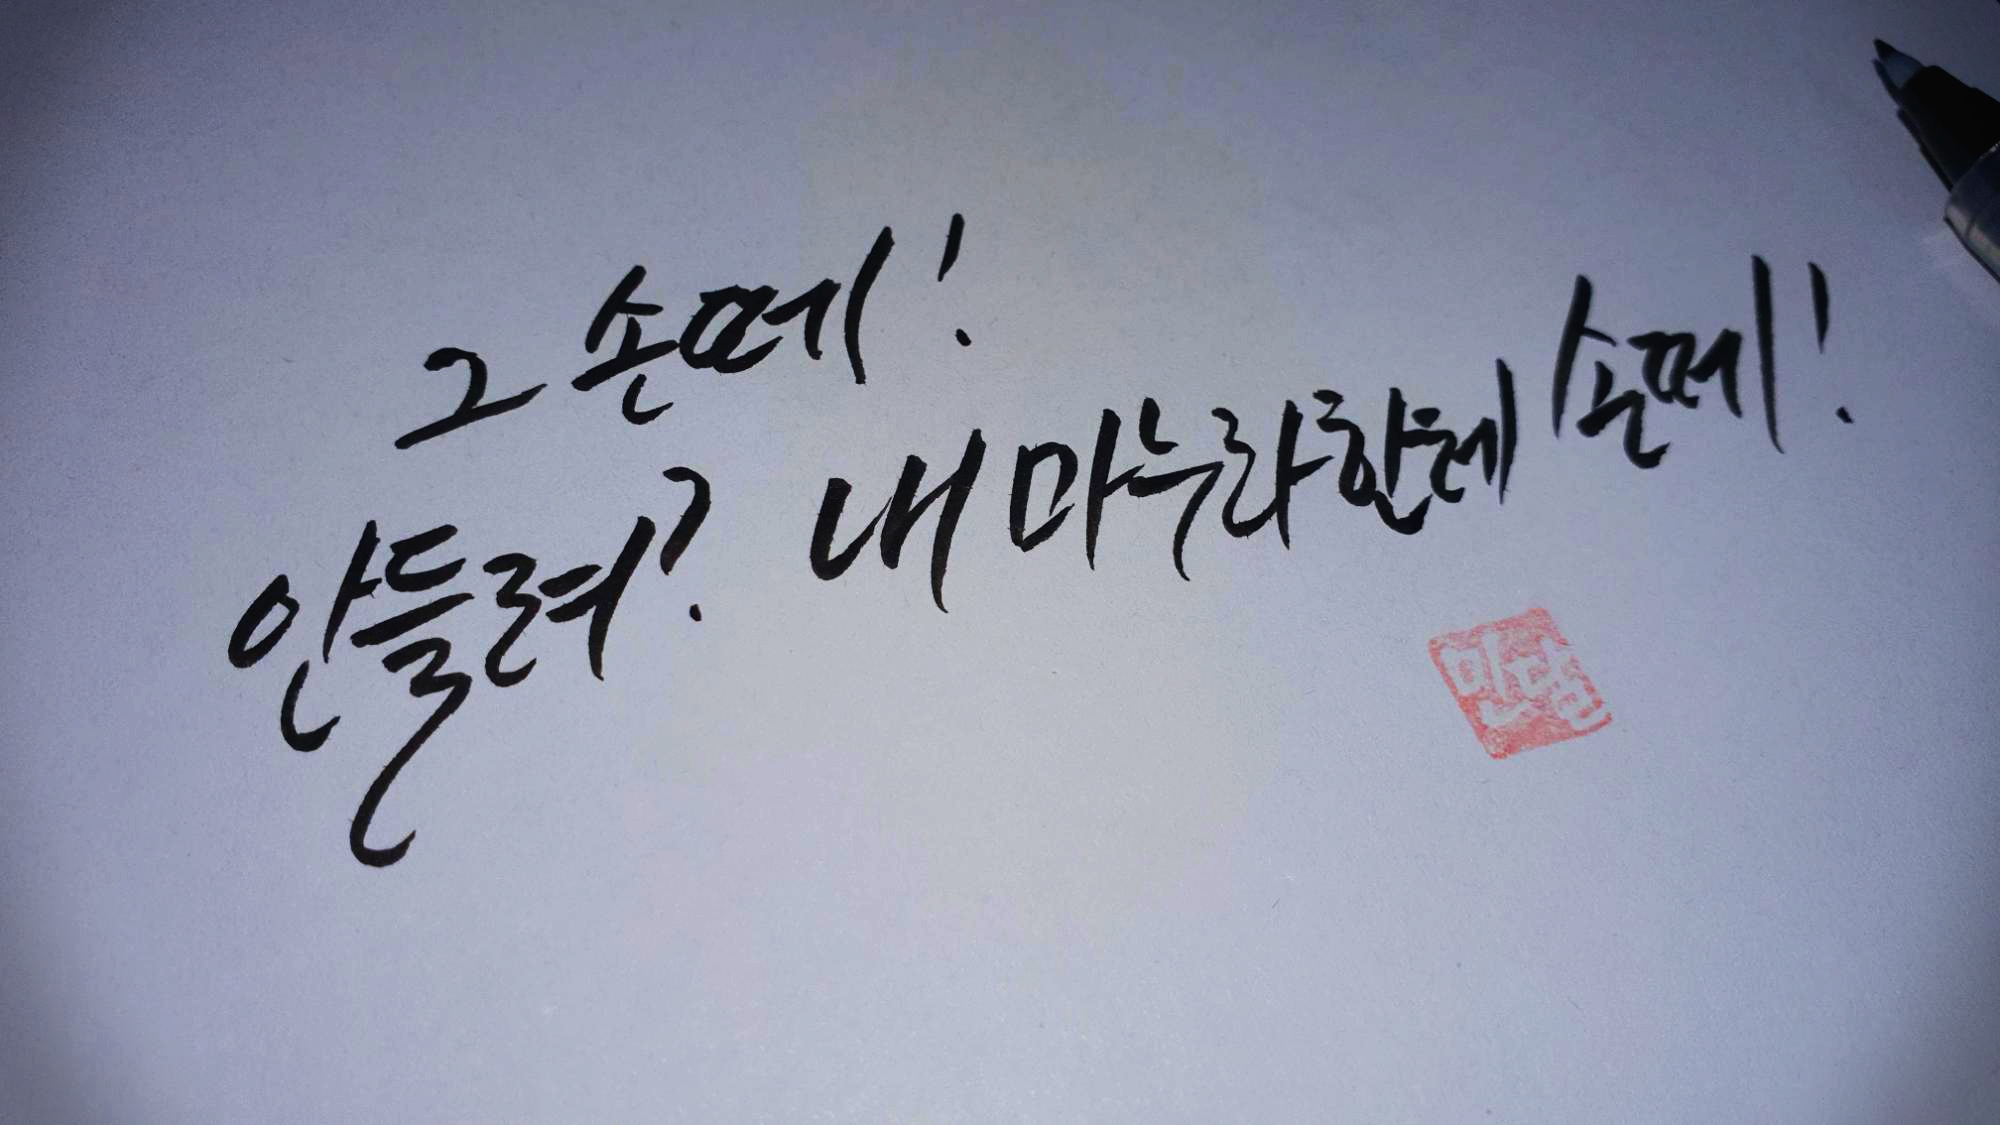 그 손떼!
안들려? 내 마누라한테 손떼!
민달